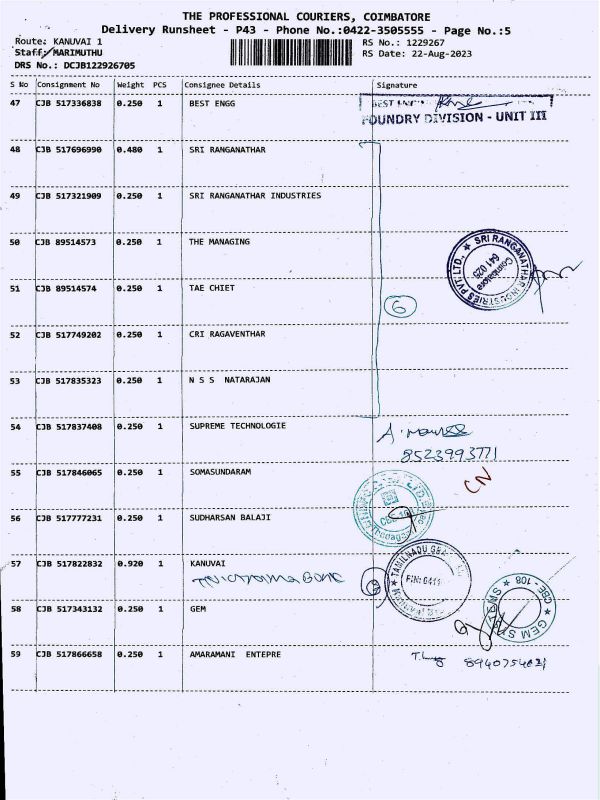 THE PROFESSIONAL COURIERS, COIMBATORE
Delivery Runsheet - P43 - Phone No.:0422-3505555 - Page No.:5
Route: KANUVAI 1 RS No.: 1229267
Staff: MARIMUTHU RS Date: 22-Aug-2023
DRS No.: DCJB122926705
S No Consignment No Weight PCS Consignee Details Signature
47 CJB 517336838 0.250 1 BEST ENGG BEST
FOUNDRY DIVISION - UNIT III
48 CJB 517696990 0.480 1 SRI RANGANATHAR
49 CJB 517321909 0.250 1 SRI RANGANATHAR INDUSTRIES
50 CJB 89514573 0.250 1 THE MANAGING
SRI RANGANATHAR INDUSTRIES PVT. LTD.,
Coimbatore
641 025
51 CJB 89514574 0.250 1 TAE CHIET
6
52 CJB 517749202 0.250 1 CRI RAGAVENTHAR
53 CJB 517835323 0.250 1 N S S NATARAJAN
54 CJB 517837408 0.250 1 SUPREME TECHNOLOGIE
8523993771
55 CJB 517846065 0.250 1 SOMASUNDARAM
CN
56 CJB 517777231 0.250 1 SUDHARSAN BALAJI
57 CJB 517822832 0.920 1 KANUVAI
TAMILNADU
58 CJB 517343132 0.250 1 GEM
GEM SYSTEMS CBE - 108
59 CJB 517866658 0.250 1 AMARAMANI ENTEPRE